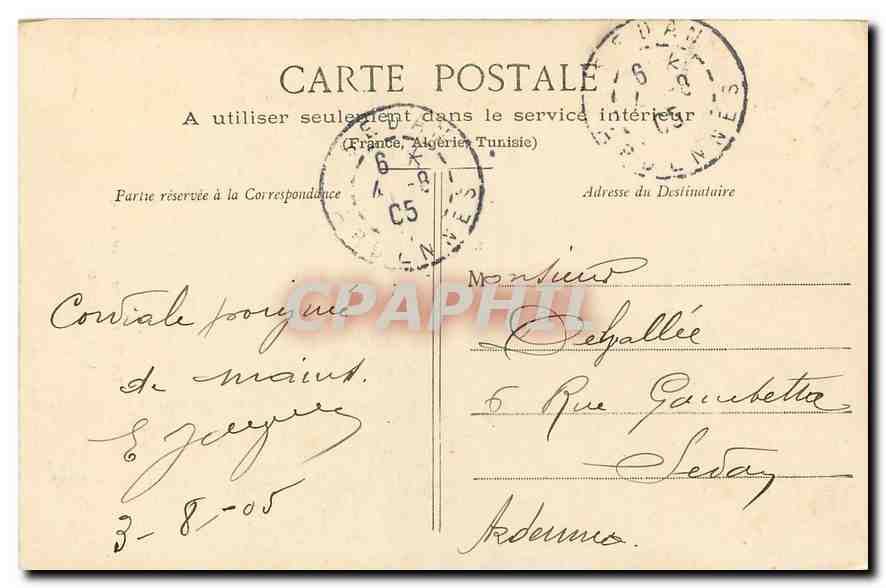 CARTE POSTALE
A utiliser seulement dans le service intérieur
(France, Algérie, Tunisie)
Partie réservée à la Correspondance
Adresse du Destinataire
SEDAN
6 K
4 -8
05
ARDENNES
SEDAN
6 K
4 -8
05
ARDENNES
CPAPHIL
Cordiale poignée
de mains.
E
3-8-05
Monsieur
Delhallée
6 Rue Gambetta
Sedan
Ardennes.